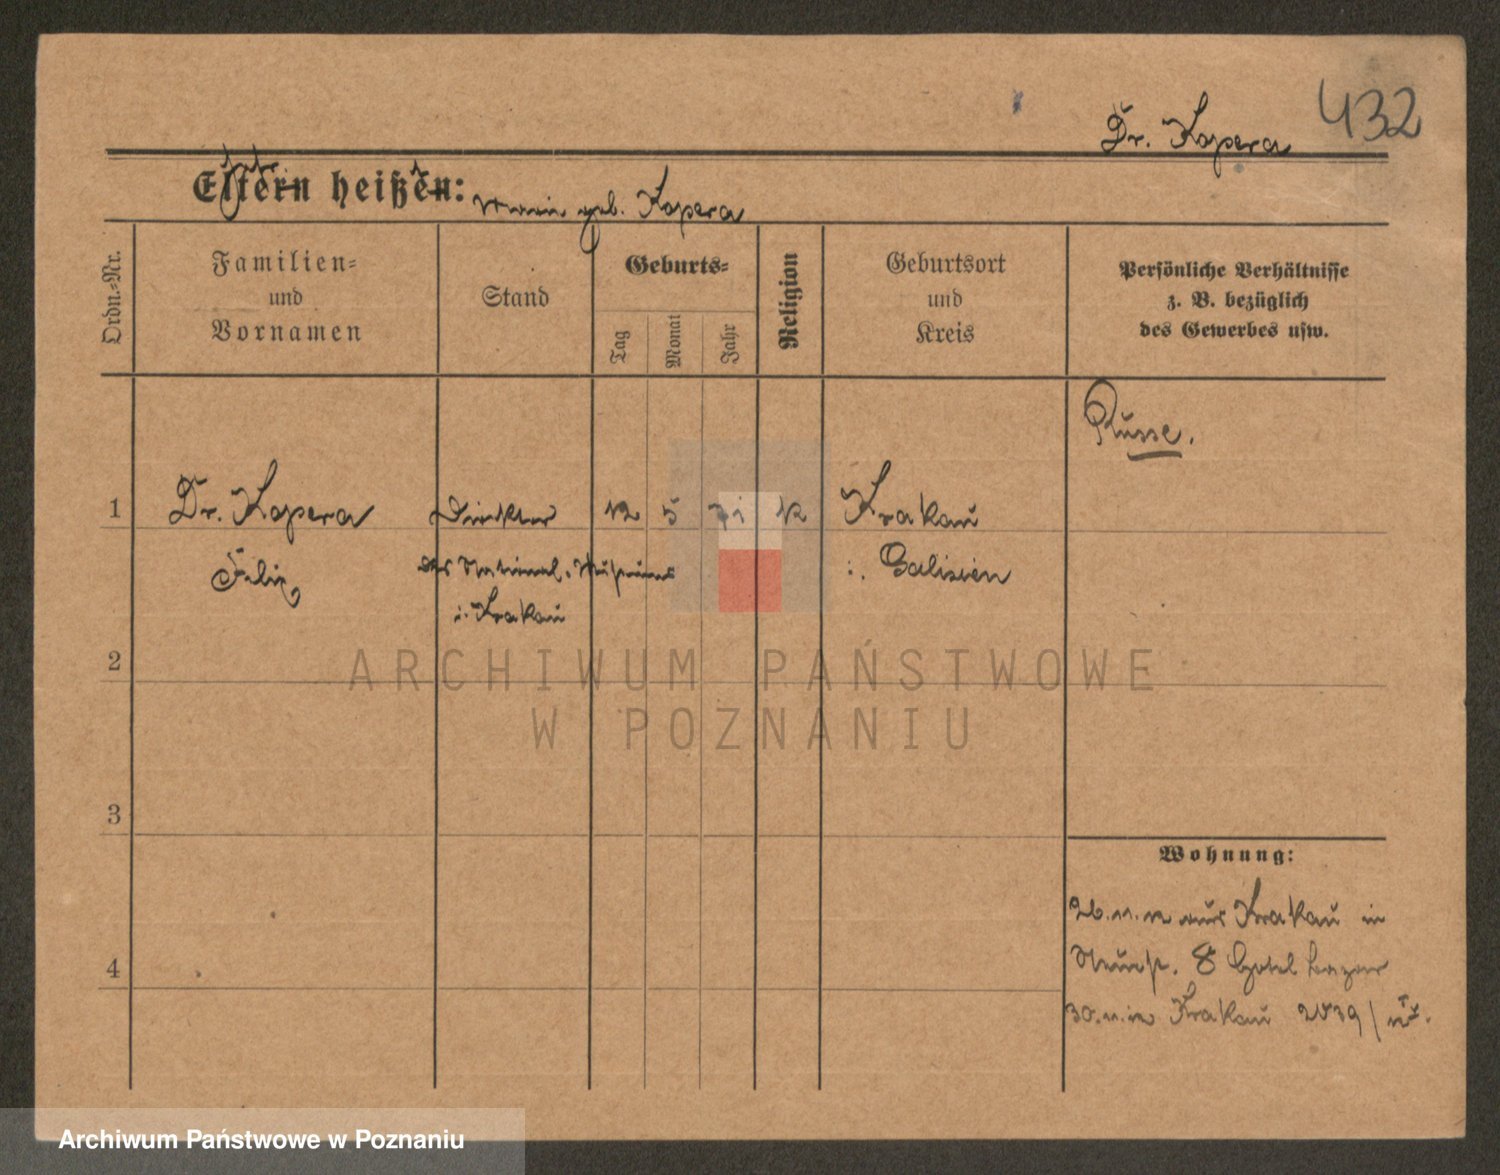 432
Dr. Kopera
Eltern heißen:
geb. Kopera
Ordn.-Nr.
Familien-
und
Vornamen
Stand
Geburts-
Tag
Monat
Jahr
Religion
Geburtsort
und
Kreis
Persönliche Verhältnisse
z. B. bezüglich
des Gewerbes usw.
Russe.
1
Dr. Kopera
Direktor
12
5
71
k
Krakau
Felix
des National-Museums
i. Galizien
i. Krakau
2
ARCHIWUM PAŃSTWOWE
W POZNANIU
3
Wohnung:
26.11.12 aus Krakau in
4
8 Hotel Bazar
30.11.12 Krakau 2039/
Archiwum Państwowe w Poznaniu